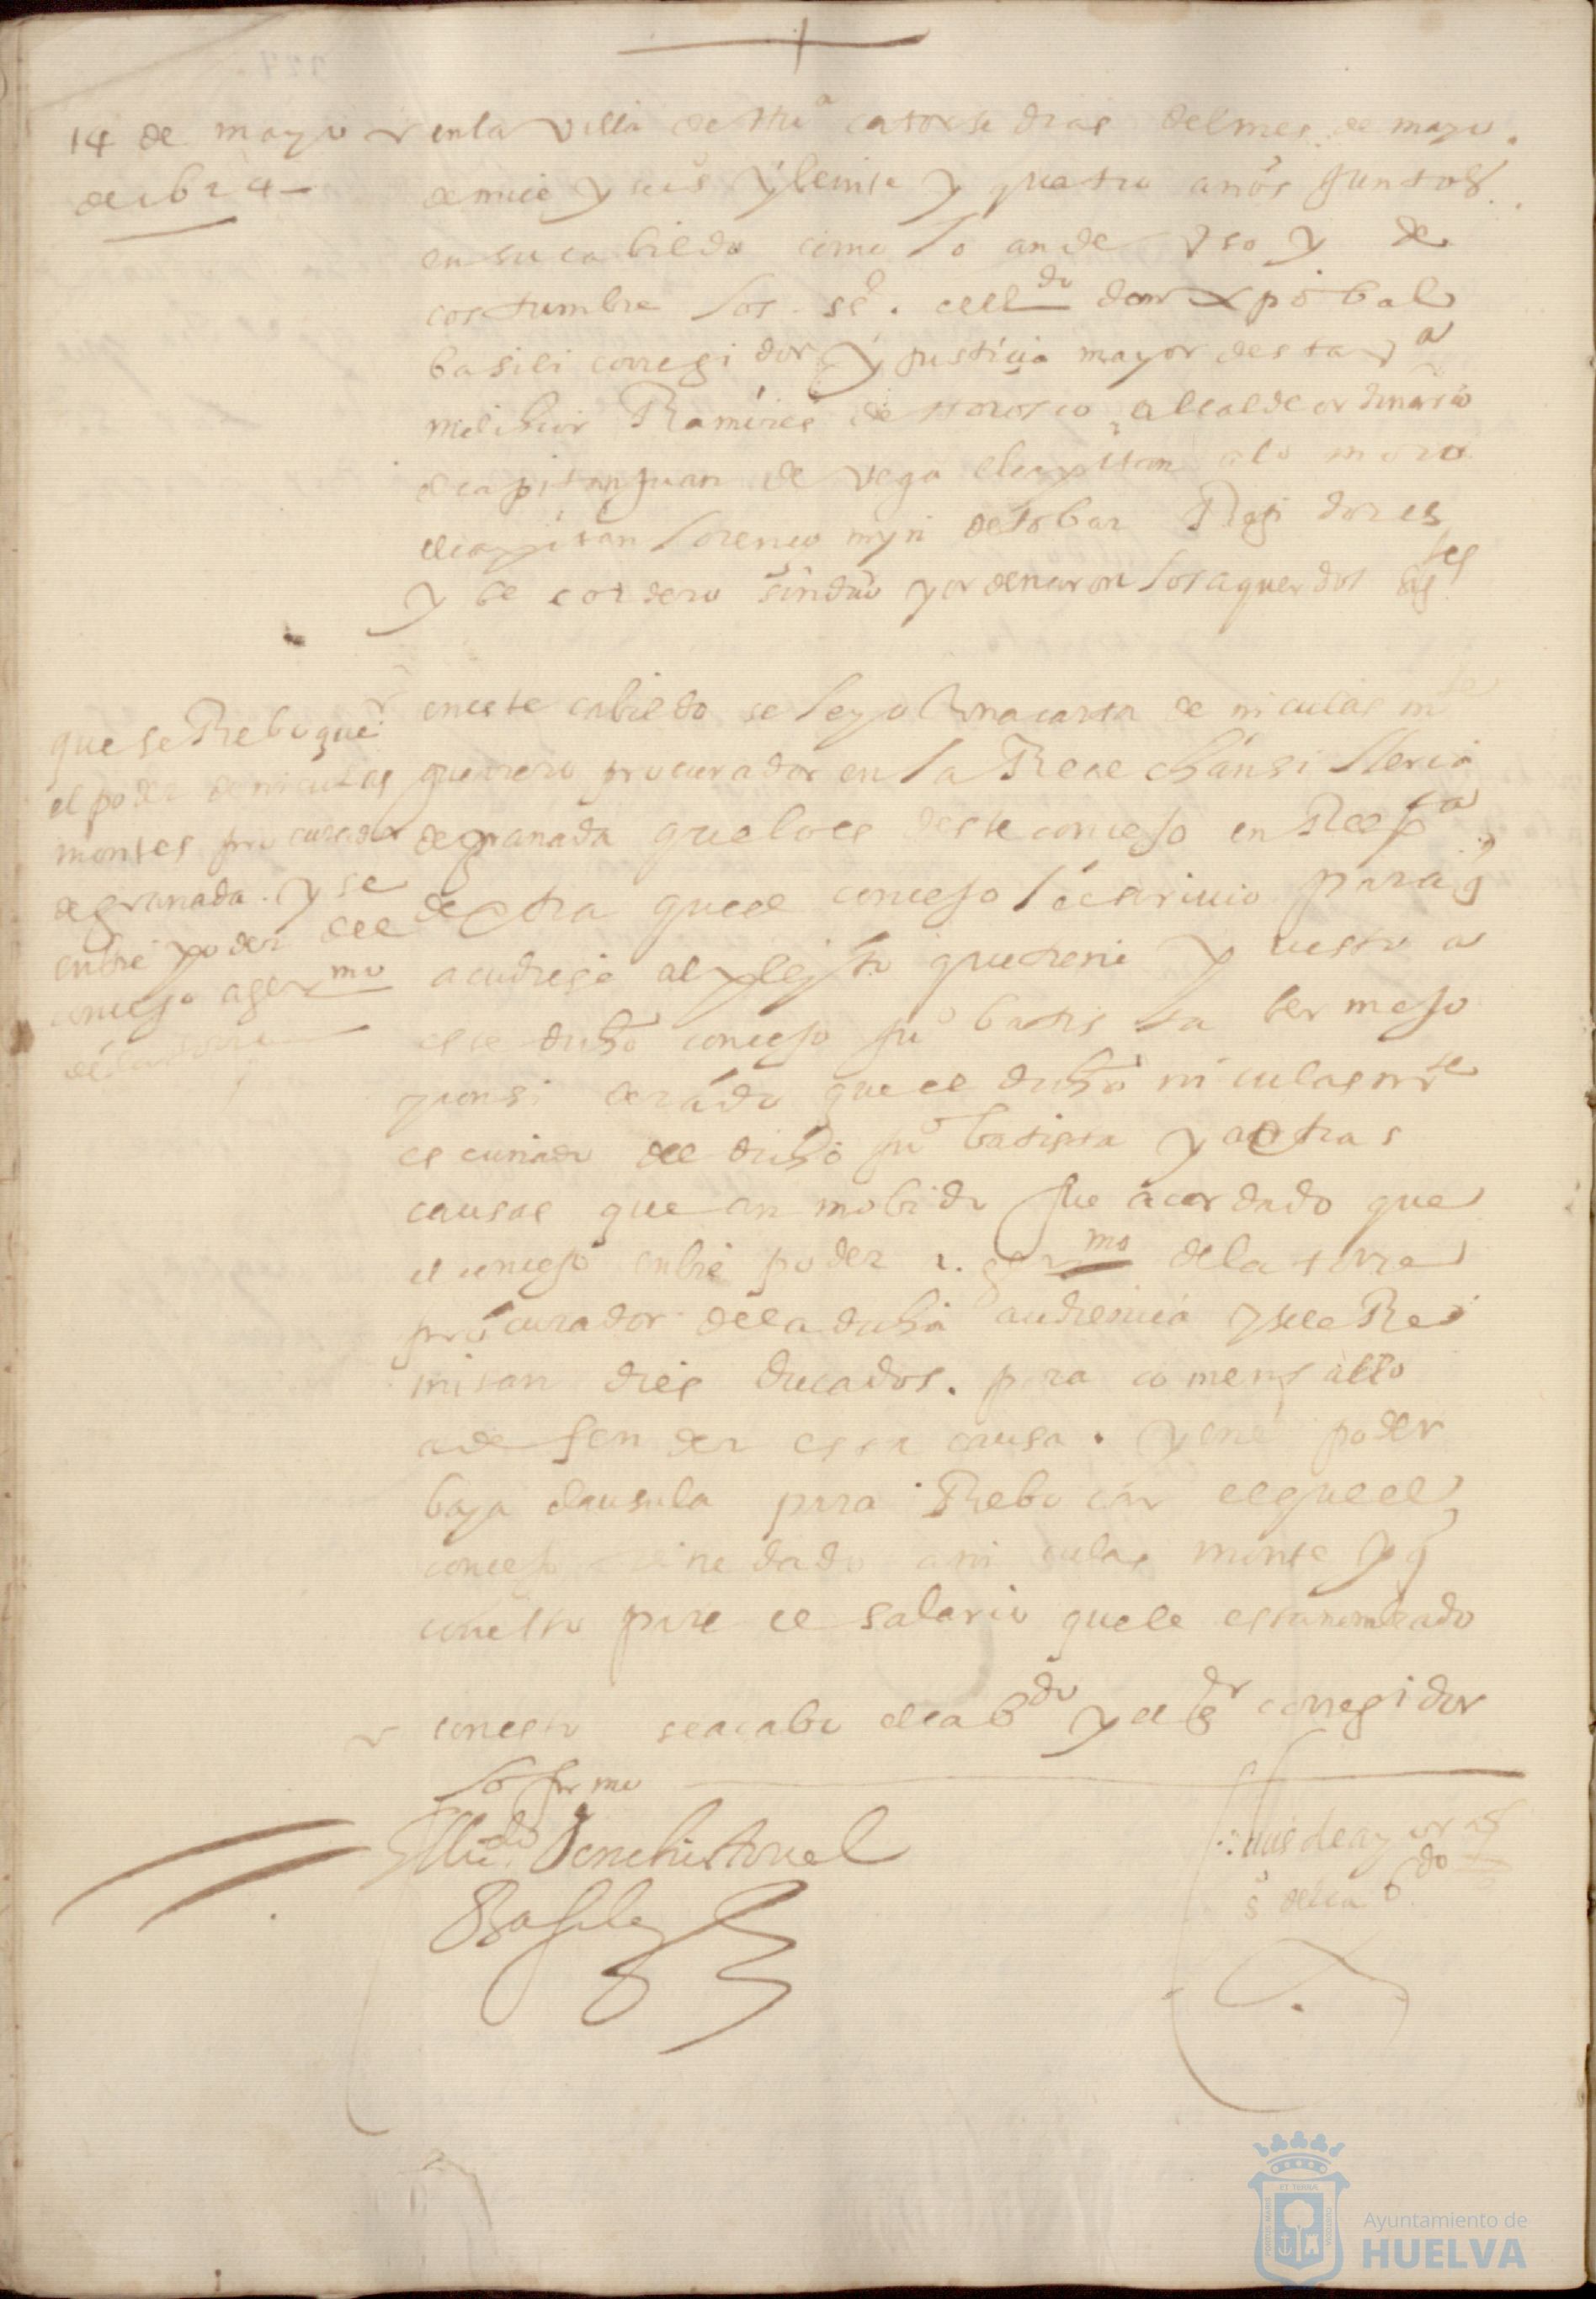 14 de mayo
de 1624
en la villa de gue^a catorse dias del mes de mayo
de mill y seis y beinte y quatro años juntos
en su cabildo como lo an de uso y de
costumbre los se^s. el l^do don xpobal
basili corregidor y justicia mayor desta v^a
melchior Ramires de alcalde ordinario
el capitan juan de vega el capitan
el capitan lorenço mrn de tobar Regidores
y cordero sindico y ordenaron los aquerdos sig^tes
que se Reboque
el poder de niculas
montes procurador
de granada. y se
enbie poder del
consejo a ger^mo
de la torre
en este cabildo se leyo una carta de niculas m^te
procurador en la Real chansilleria
de granada que lo es deste consejo en Resp^ta
de otra que el consejo le escriuio para q
acudiese al pleyto que tiene y uisto
este dicho consejo ju^o batista bermejo
y considerado que el dicho niculas m^te
es cuñado del dicho ju^o batista y a otras
causas que an mobido fue acordado que
el consejo enbie poder a ger^mo de la torre
procurador de la dicha audiencia y se le Re
mitan dies ducados. para comensallo
a defender esta causa. y en el poder
baya clausula para Rebocar el que el
consejo tiene dado a niculas monte y q
con esto pare el salario que le esta nombrado
con esto se acabo el cab^do y el s^r corregidor
lo firmo
El lic^do Don christoual
Basily
luis de ayoras
s^o del cab^do
PORTUS MARIS
ET TERRA
CUSTODIA
Ayuntamiento de
HUELVA